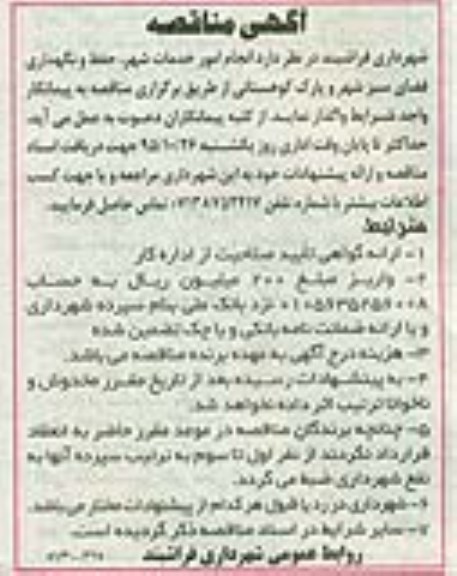 آگهی مناقصه
شهرداری فراشبند در نظر دارد انجام امور خدمات شهر، حفظ و نگهداری
فضای سبز شهر و پارک کوهستانی از طریق برگزاری مناقصه به پیمانکار
واجد شرایط واگذار نماید. از کلیه پیمانکاران دعوت به عمل می آید
حداکثر تا پایان وقت اداری روز یکشنبه ۹۵/۱۰/۲۶ جهت دریافت اسناد
مناقصه و ارائه پیشنهادات خود به این شهرداری مراجعه و یا جهت کسب
اطلاعات بیشتر با شماره تلفن تماس حاصل فرمایید.
شرایط:
۱- ارائه گواهی تأیید صلاحیت از اداره کار
۲- واریز مبلغ ۲۰۰ میلیون ریال به حساب
نزد بانک ملی بنام سپرده شهرداری
و یا ارائه ضمانت نامه بانکی و یا چک تضمین شده
۳- هزینه درج آگهی به عهده برنده مناقصه می باشد.
۴- به پیشنهادات رسیده بعد از تاریخ مقرر مخدوش و
ناخوانا ترتیب اثر داده نخواهد شد.
۵- چنانچه برندگان مناقصه در موعد مقرر حاضر به انعقاد
قرارداد نگردند از نفر اول تا سوم به ترتیب سپرده آنها به
نفع شهرداری ضبط می گردد.
۶- شهرداری در رد یا قبول هر کدام از پیشنهادات مختار می باشد.
۷- سایر شرایط در اسناد مناقصه ذکر گردیده است.
روابط عمومی شهرداری فراشبند